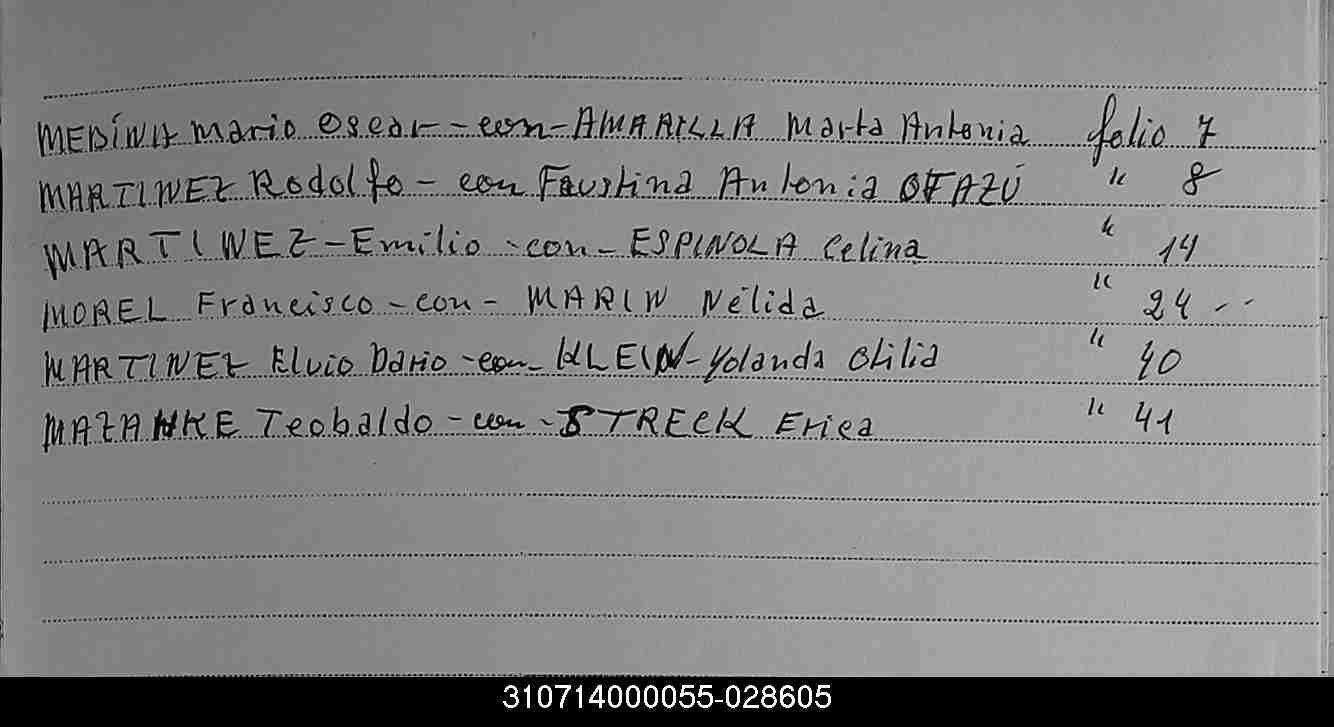 MEDÍNA Mario Oscar - con - AMARILLA Marta Antonia folio 7
MARTINEZ Rodolfo - con Faustina Antonia OTAZÚ " 8
MARTINEZ - Emilio - con - ESPINOLA Celina " 14
MOREL Francisco - con - MARIN Nélida " 24 - -
MARTINEZ Elvio Dario - con - KLEIN - Yolanda Otilia " 40
MAZANKE Teobaldo - con - STRECK Erica " 41
310714000055-028605